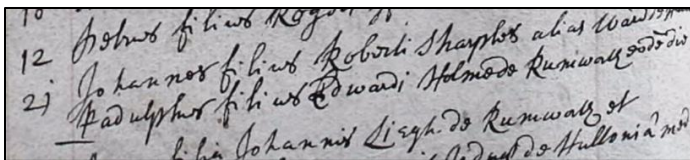 10
12 Petrus filius Rog
21 Johannes filius Roberti Sharples alias Ward
Radulphus filius Edwardi Holme de Rumworth eodē die
filia Johannis Liegh de Rumworth et
de Hulton